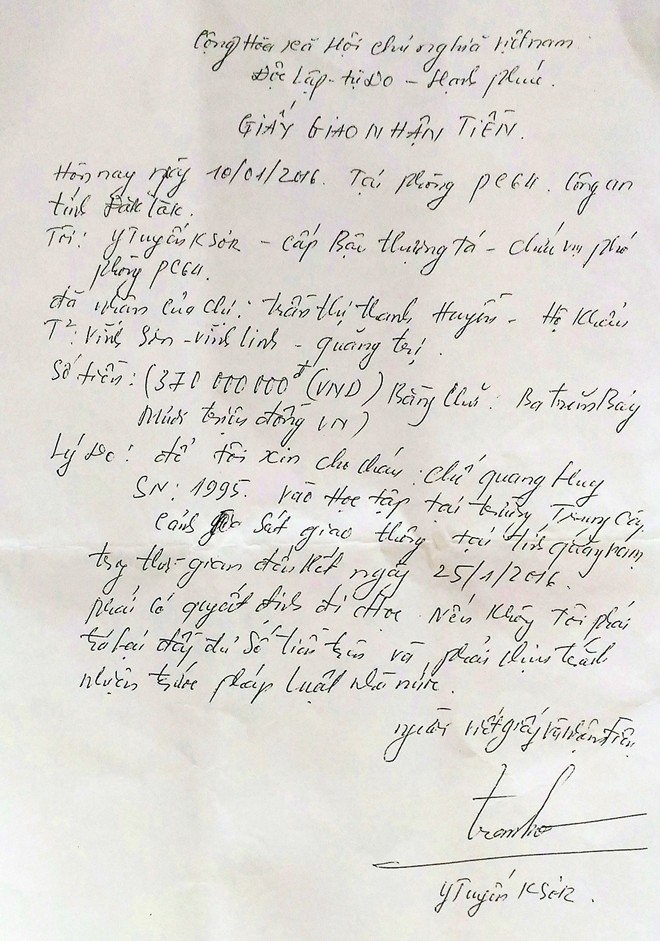 Cộng Hòa xã Hội chủ nghĩa việt nam
Độc Lập - tự Do - Hạnh phúc.
GIẤY GIAO NHẬN TIỀN.
Hôm nay ngày 10/01/2016. Tại phòng PC64. Công an
tỉnh Đăk Lăk.
Tôi: Y Tuyến KSơR - cấp Bậc thượng tá - chức vụ phó
phòng PC64.
đã nhận của chị: Trần thị thanh Huyền - Hộ Khẩu
T²: Vĩnh Sơn - vĩnh linh - quảng trị.
Số tiền: (370 000 000đ (VND) Bằng chữ: Ba trăm Bảy
Mươi triệu đồng VN)
Lý Do: để tôi xin cho cháu: chế quang Huy
SN: 1995. vào Học tập tại trường Trung Cấp
Cảnh sát giao thông tại tỉnh quảng nam
thời gian đến hết ngày 25/1/2016.
phải có quyết định đi Học. Nếu không tôi phải
trả lại đầy đủ Số tiền trên và phải chịu trách
nhiệm trước pháp luật nhà nước.
người viết giấy và nhận tiền
Y Tuyến KSơR.